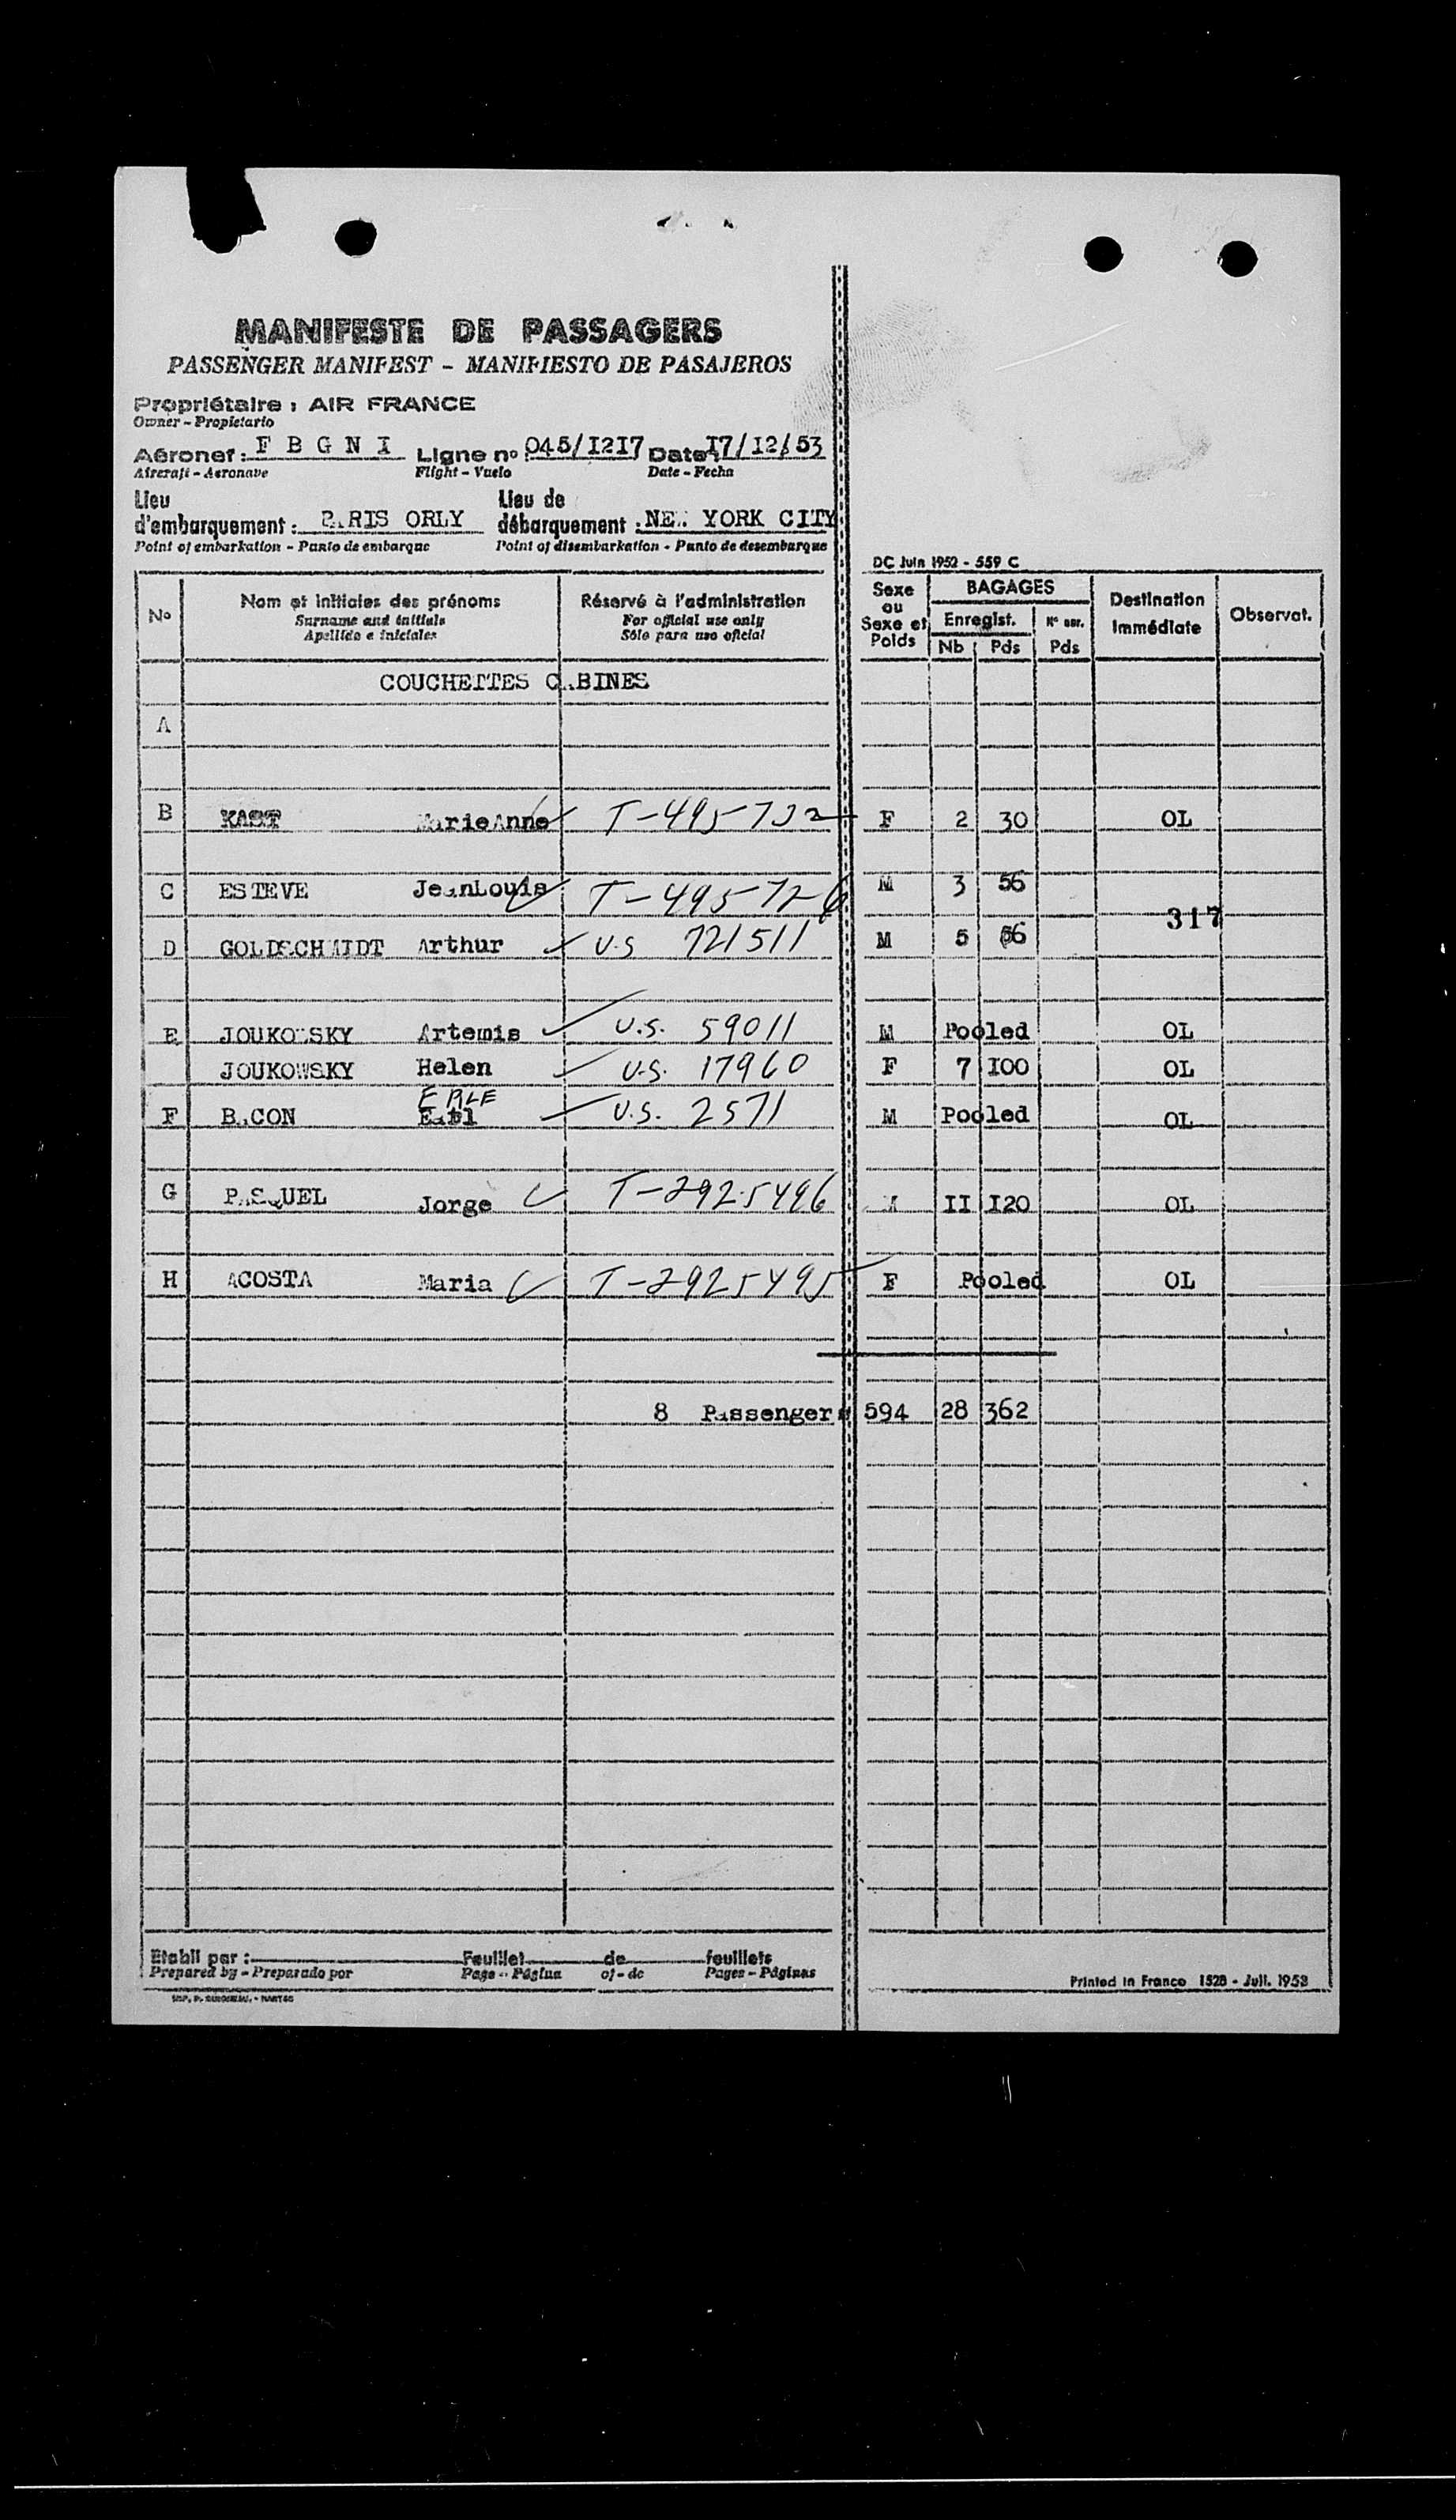 MANIFESTE DE PASSAGERS
PASSENGER MANIFEST - MANIFIESTO DE PASAJEROS
Propriétaire : AIR FRANCE
Owner - Propietario
Aéronef : F B G N I Ligne no 045/I2I7 Date I7/I2/53
Aircraft - Aeronave Flight - Vuelo Date - Fecha
Lieu d'embarquement : PARIS ORLY Lieu de débarquement : NEW YORK CITY
Point of embarkation - Punto de embarque Point of disembarkation - Punto de desembarque
DC Juin 1952 - 559 C
No Nom et initiales des prénoms Réservé à l'administration Sexe ou Sexe et Poids BAGAGES Destination Immédiate Observat.
Surname and initials For official use only Enregist. N° enr.
Apellido e iniciales Sólo para uso oficial Nb Pds Pds
COUCHETTES CABINES
A
B KAST MarieAnne T-495732 F 2 30 OL
C ESTEVE JeanLouis T-495726 M 3 56
317
D GOLDSCHMIDT Arthur U.S 721511 M 5 56
E JOUKOWSKY Artemis U.S. 59011 M Pooled OL
JOUKOWSKY Helen U.S. 17960 F 7 I00 OL
ERLE
F BACON U.S. 2571 M Pooled OL
G PASQUEL Jorge T-2925496 M II I20 OL
H ACOSTA Maria T-2925495 F Pooled OL
8 Passengers 594 28 362
Etabli par : Feuillet de feuillets
Prepared by - Preparado por Page - Página of - de Pages - Páginas
Printed in France 1528 - Juil. 1953